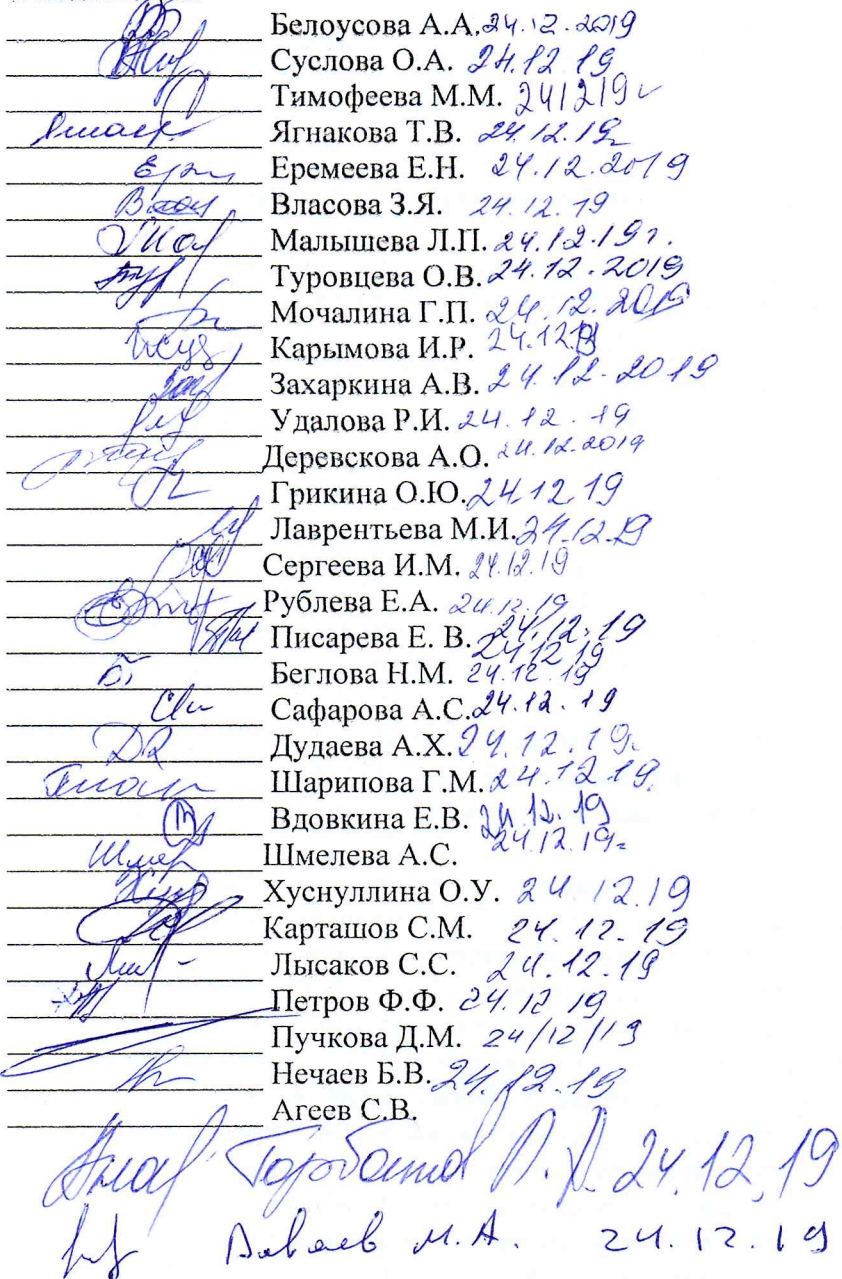 Белоусова А.А. 24.12.2019
Суслова О.А. 24.12.19
Тимофеева М.М. 241219
Ягнакова Т.В. 24.12.19
Еремеева Е.Н. 24.12.2019
Власова З.Я. 24.12.19
Малышева Л.П. 24.12.19г.
Туровцева О.В. 24.12.2019
Мочалина Г.П. 24.12.2019
Карымова И.Р. 24.12.19
Захаркина А.В. 24.12-2019
Удалова Р.И. 24.12.19
Деревскова А.О. 24.12.2019
Грикина О.Ю. 24.12.19
Лаврентьева М.И. 24.12.19
Сергеева И.М. 24.12.19
Рублева Е.А. 24.12.19
Писарева Е. В. 24.12.19
24.12.19
Беглова Н.М. 24.12.19
Сафарова А.С. 24.12.19
Дудаева А.Х. 24.12.19.
Шарипова Г.М. 24.12.19.
Вдовкина Е.В. 24.12.19
Шмелева А.С. 24.12.19г
Хуснуллина О.У. 24.12.19
Карташов С.М. 24.12.19
Лысаков С.С. 24.12.19
Петров Ф.Ф. 24.12 19
Пучкова Д.М. 24/12/19
Нечаев Б.В. 24.12.19
Агеев С.В.
24.12.19
М.А. 24.12.19